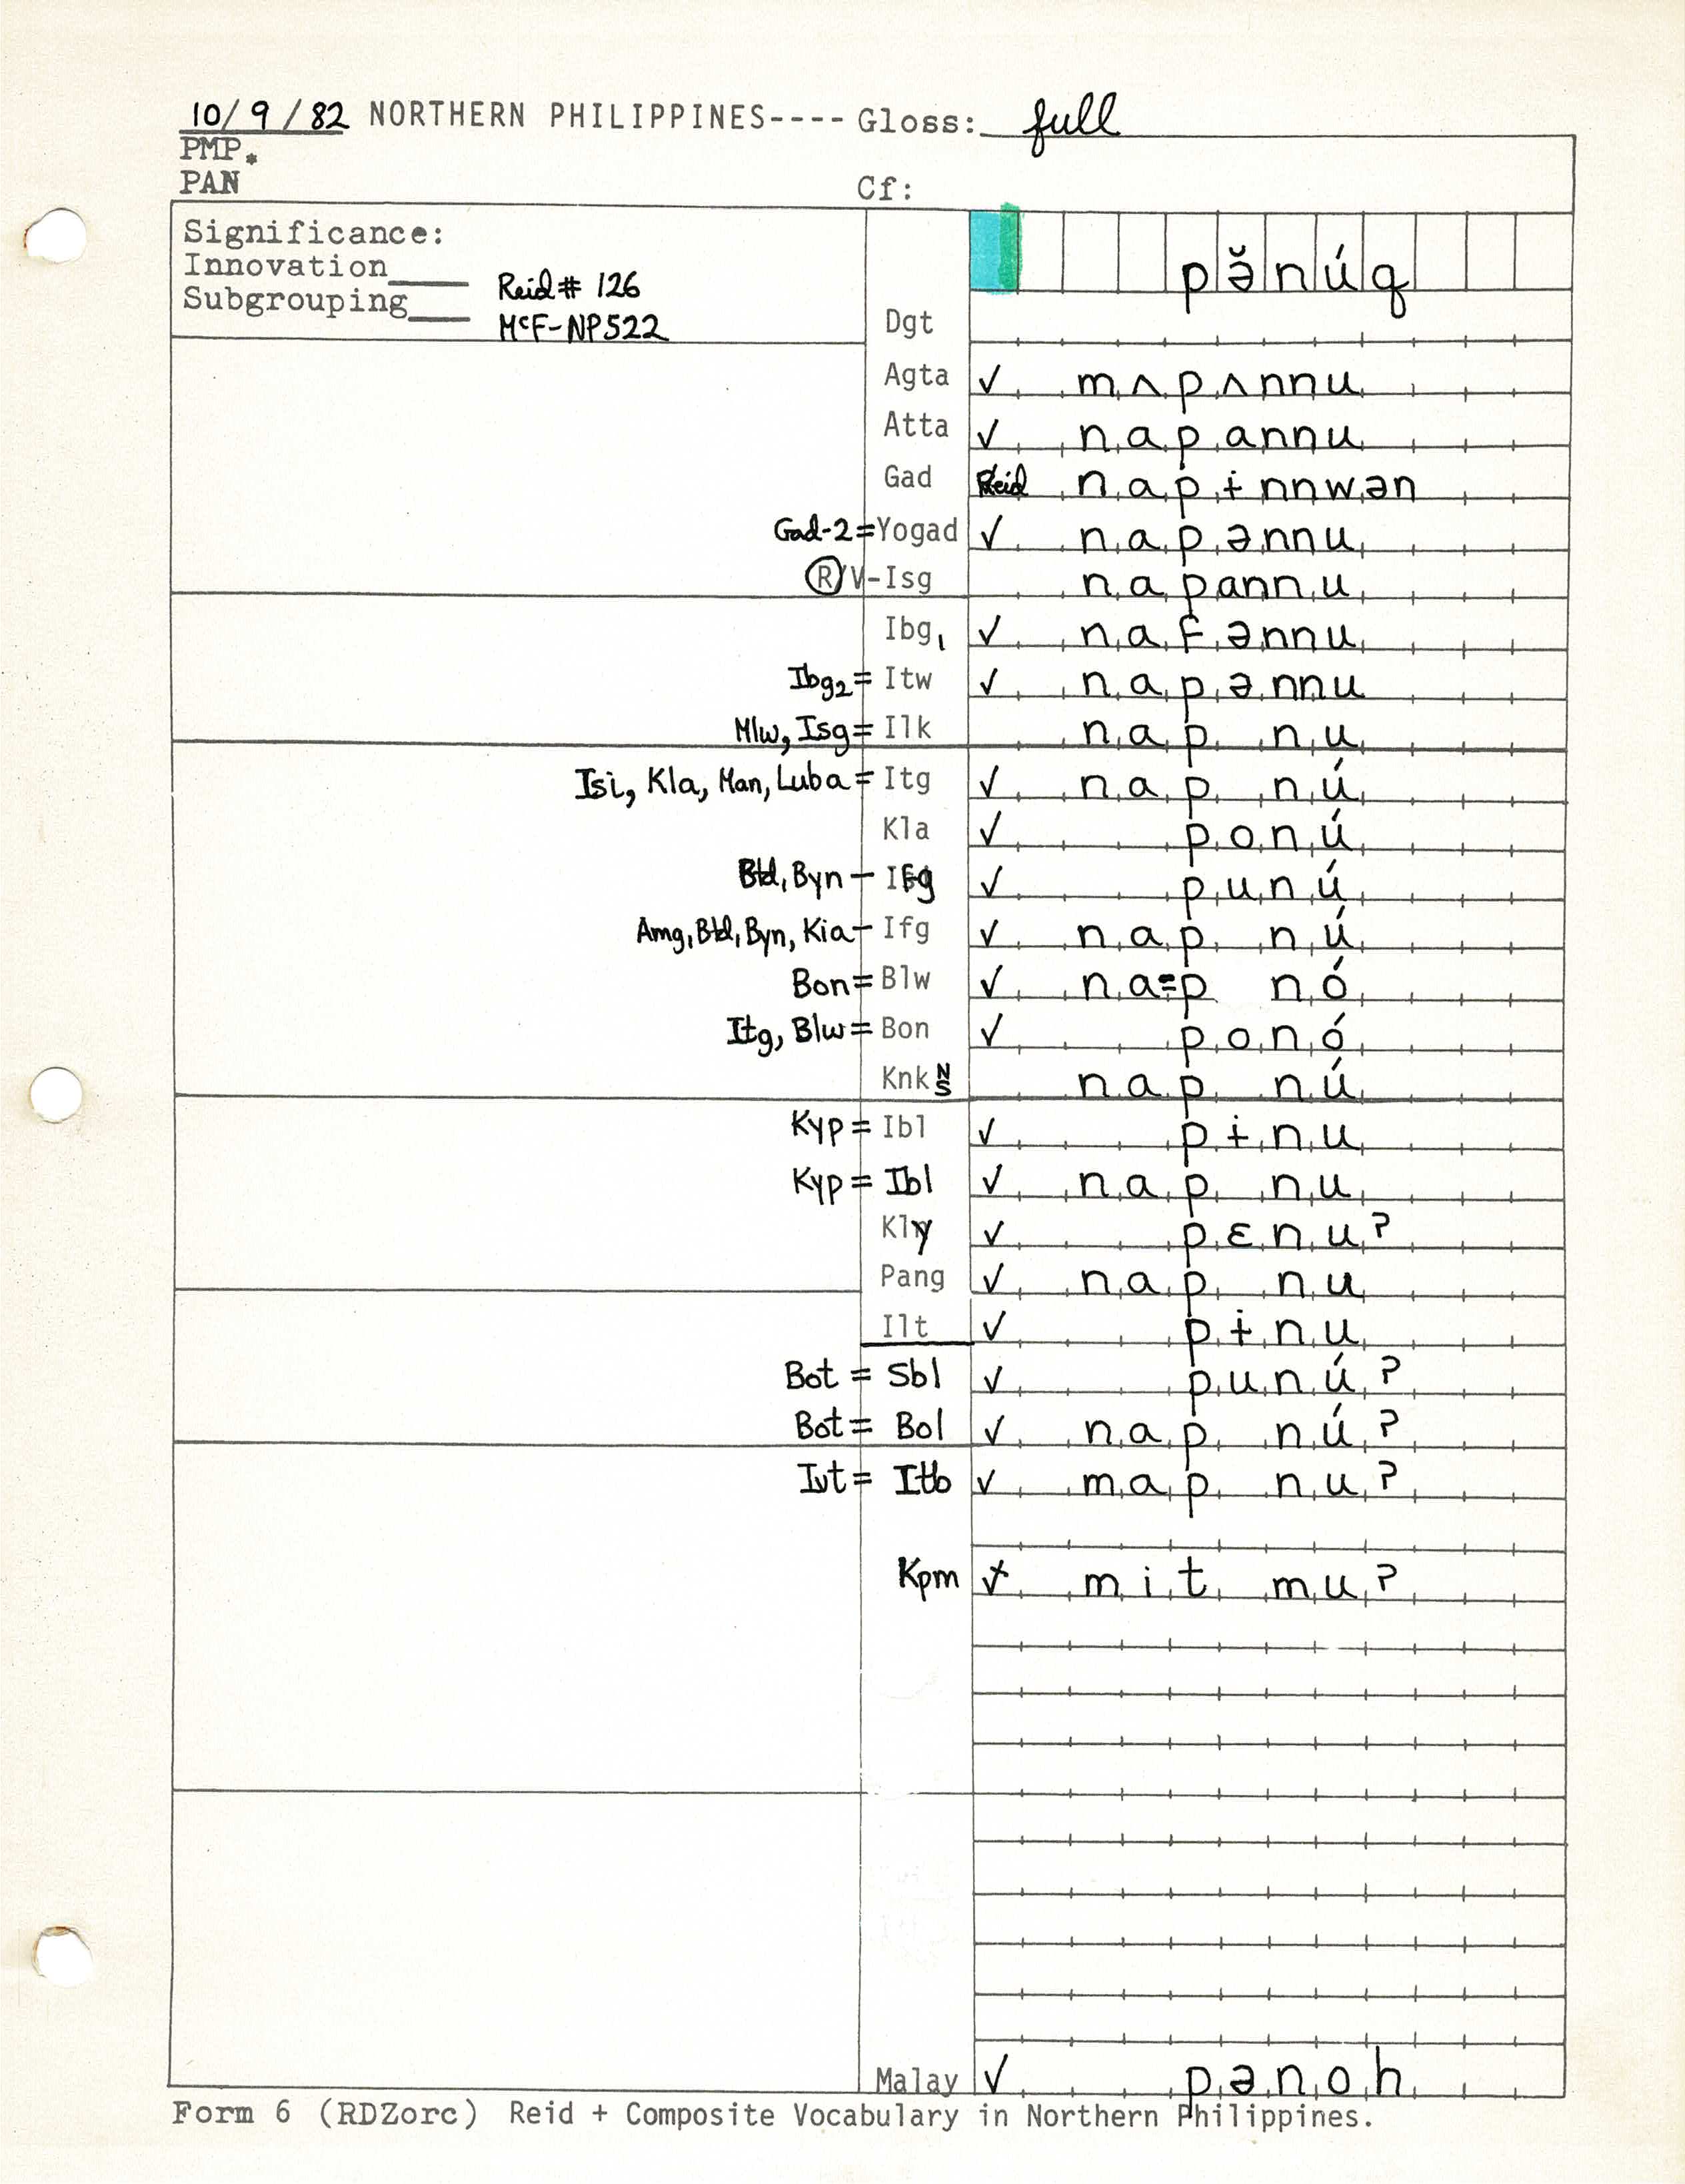 10/9/82 NORTHERN PHILIPPINES---- Gloss: full
PMP*
PAN Cf:
Significance:
Innovation____ Reid# 126
Subgrouping____ McF-NP522
pə̆núq
Dgt
Agta ✓ mʌpʌnnu
Atta ✓ napannu
Gad Reid napɨnnwən
Gad-2=Yogad ✓ napənnu
Ⓡ/V-Isg napannu
Ibg₁ ✓ nafənnu
Ibg₂= Itw ✓ napənnu
Mlw, Isg= Ilk nap nu
Isi, Kla, Man, Luba= Itg ✓ nap nú
Kla ✓ ponú
Btd, Byn- Ifg ✓ punú
Amg, Btd, Byn, Kia- Ifg ✓ nap nú
Bon= Blw ✓ na=p nó
Itg, Blw= Bon ✓ ponó
Knk N S nap nú
Kyp= Ibl ✓ pɨnu
Kyp= Ibl ✓ nap nu
Kly ✓ pɛnuʔ
Pang ✓ nap nu
Ilt ✓ pɨnu
Bot= Sbl ✓ punúʔ
Bot= Bol ✓ nap núʔ
Ivt= Itb ✓ map nuʔ
Kpm mit muʔ
Malay ✓ pənoh
Form 6 (RDZorc) Reid + Composite Vocabulary in Northern Philippines.